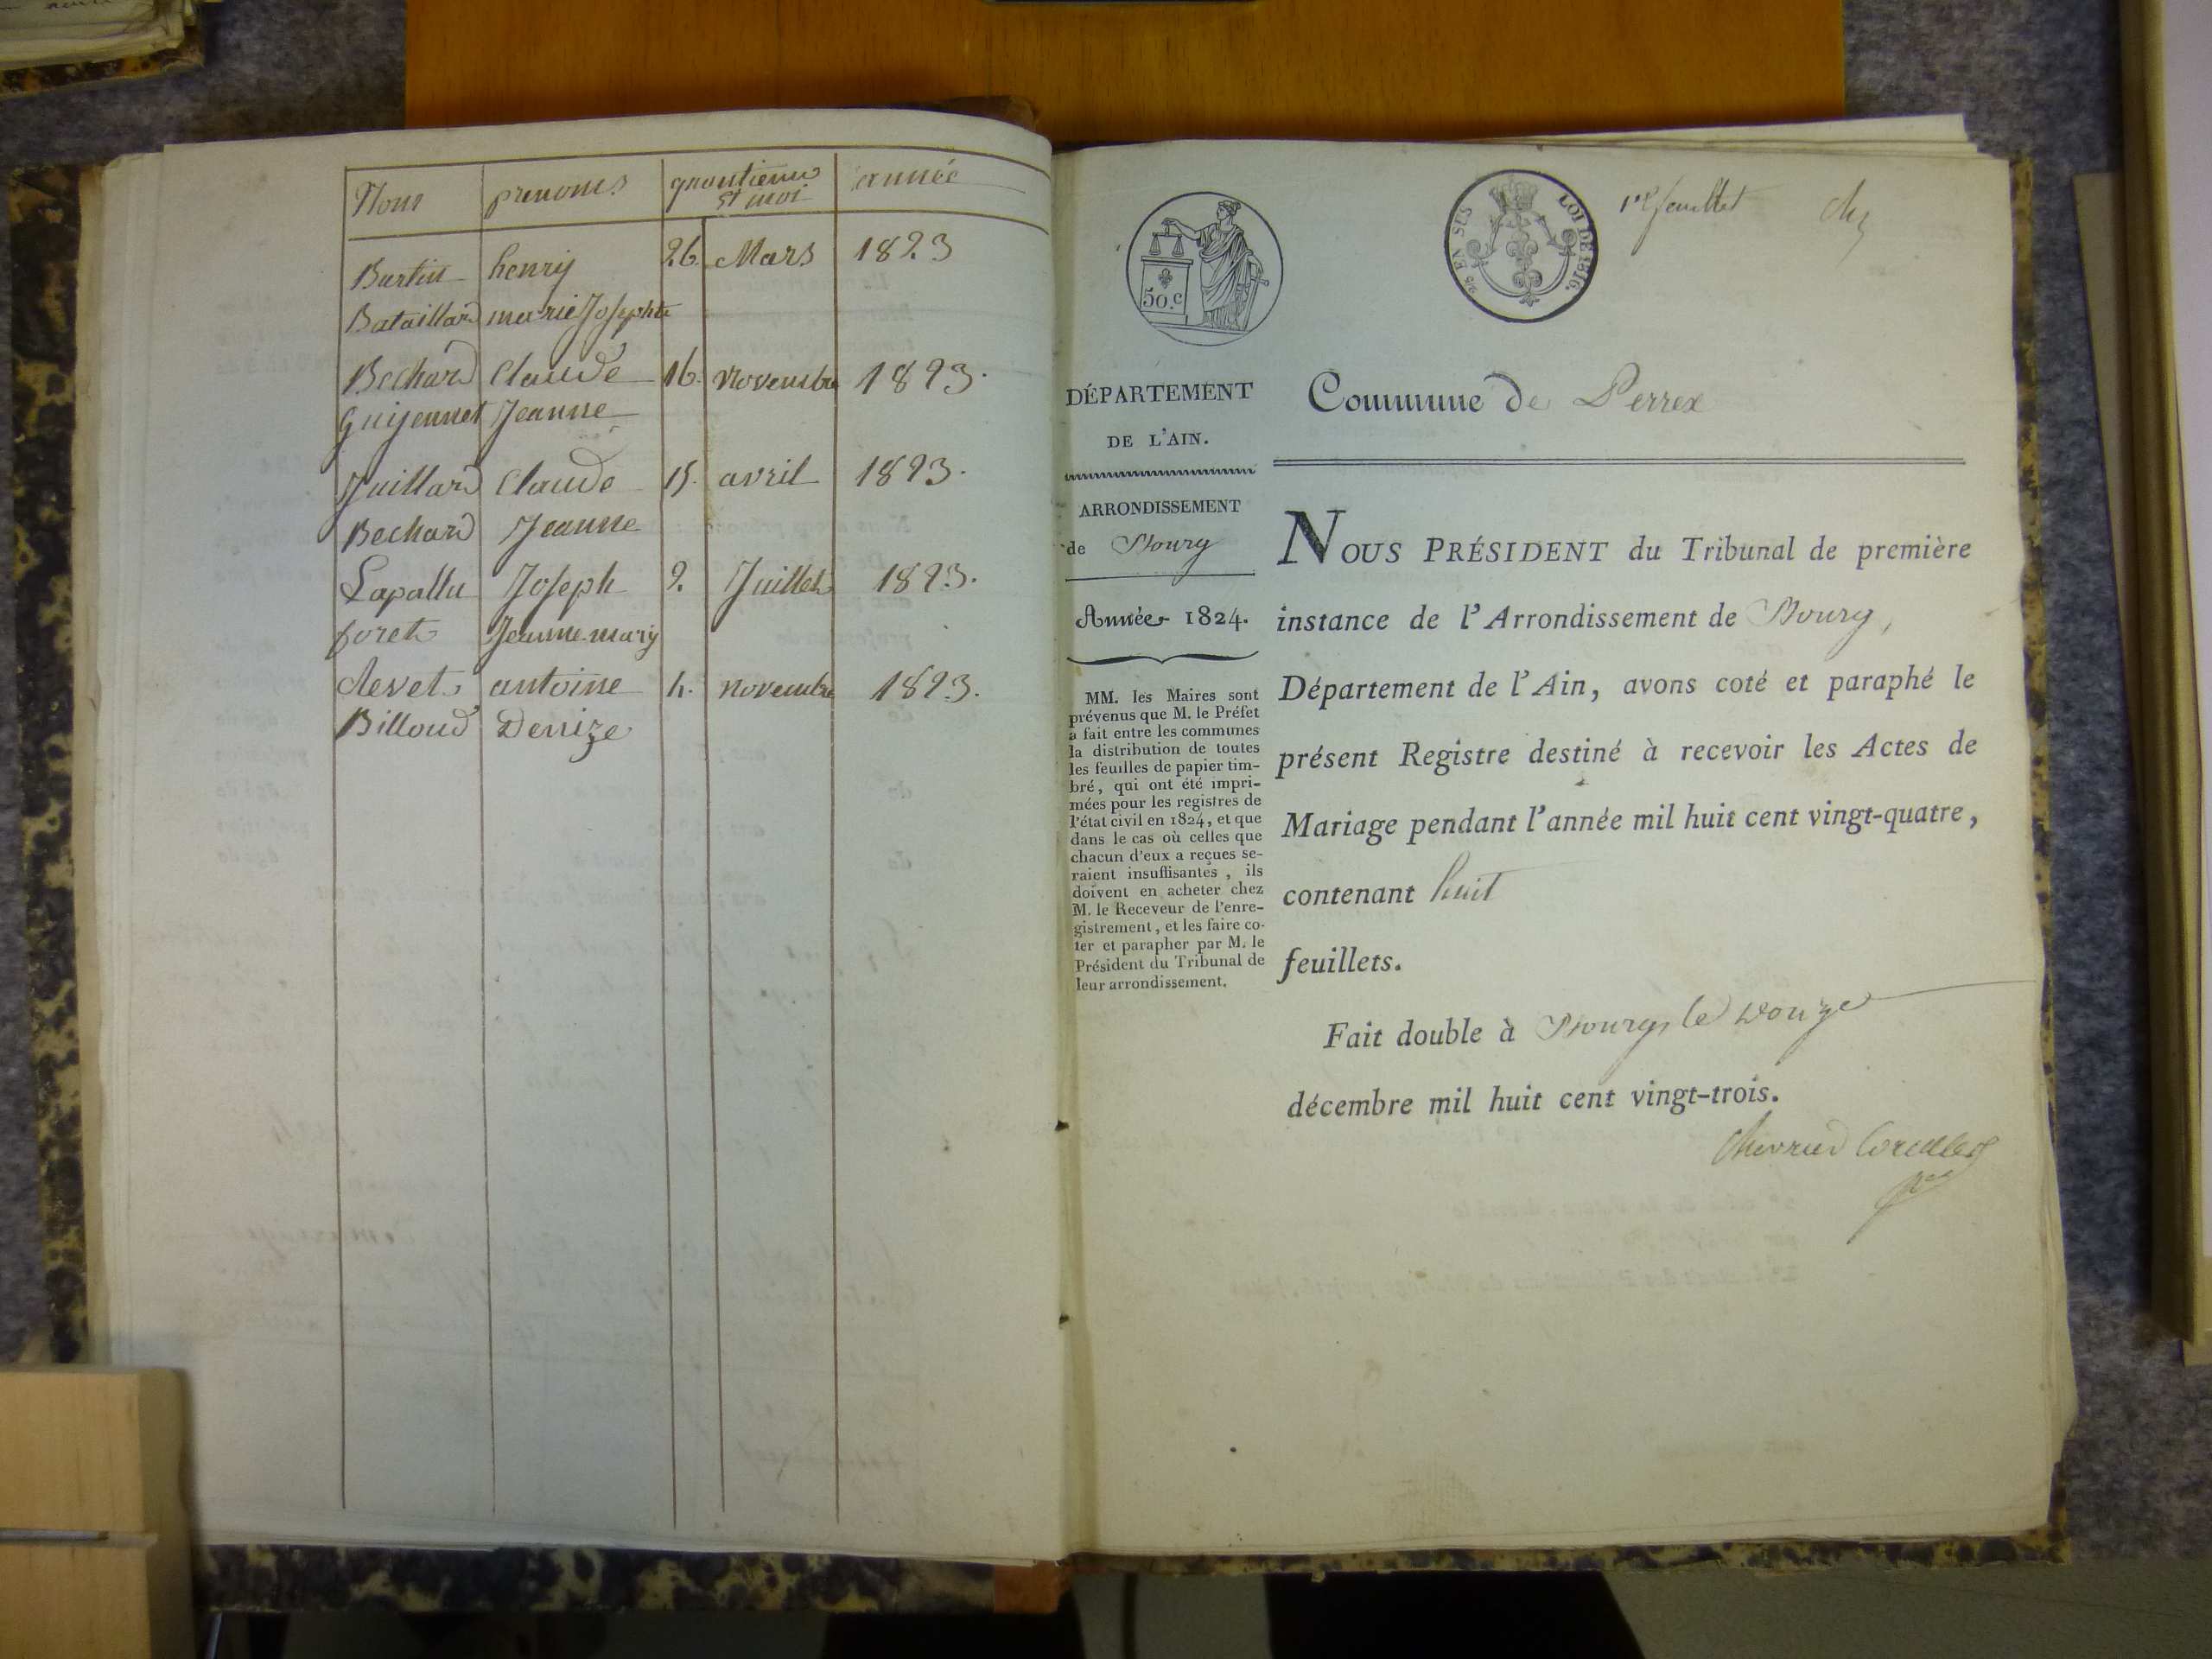 Noms prenoms quantieme et moi année
Burtin henry 26. Mars 1823
Bataillard marie Josephte
Bechard Claude 16. Novembre 1823.
Guijennet Jeanne
Juillard Claude 15. avril 1823.
Bechard Jeanne
Lapallu Joseph 2. Juillet 1823.
foret Jeanne mary
clevet antoine 4. novembre 1823.
Billoud Denize
1er feuillet
50.c
25 EN SUS
LOI DE 1816.
DÉPARTEMENT
DE L'AIN.
ARRONDISSEMENT
de Bourg
Année 1824.
MM. les Maires sont
prévenus que M. le Préfet
a fait entre les communes
la distribution de toutes
les feuilles de papier tim-
bré, qui ont été impri-
mées pour les registres de
l'état civil en 1824, et que
dans le cas où celles que
chacun d'eux a reçues se-
raient insuffisantes, ils
doivent en acheter chez
M. le Receveur de l'enre-
gistrement, et les faire co-
ter et parapher par M. le
Président du Tribunal de
leur arrondissement.
Commune de Perrex
NOUS PRÉSIDENT du Tribunal de première
instance de l'Arrondissement de Bourg,
Département de l'Ain, avons coté et paraphé le
présent Registre destiné à recevoir les Actes de
Mariage pendant l'année mil huit cent vingt-quatre,
contenant huit
feuillets.
Fait double à Bourg, le Douze
décembre mil huit cent vingt-trois.